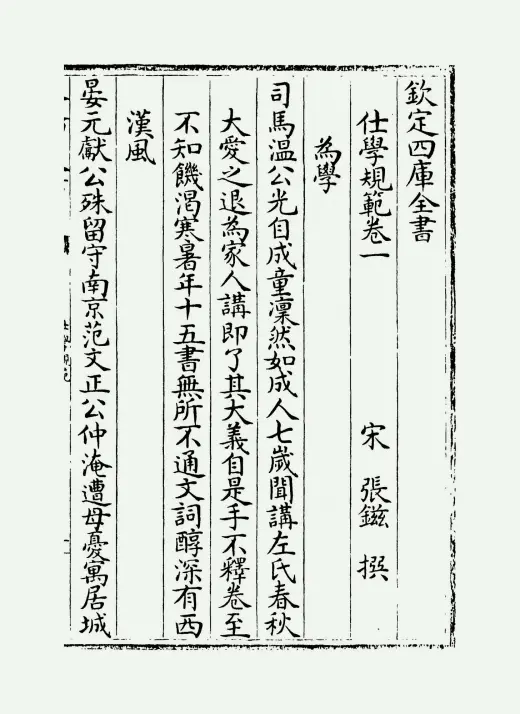 欽定四庫全書
仕學規範卷一
宋 張鎡 撰
為學
司馬溫公光自成童凜然如成人七歲聞講左氏春秋
大愛之退為家人講即了其大義自是手不釋卷至
不知饑渴寒暑年十五書無所不通文詞醇深有西
漢風
晏元獻公殊留守南京范文正公仲淹遭母憂寓居城